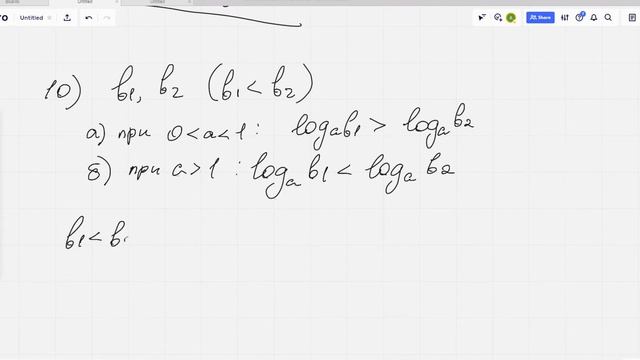 Untitled
Untitled
Share
10) b₁, b₂ (b₁ < b₂)
а) при 0 < a < 1 : logₐb₁ > logₐb₂
б) при a > 1 : logₐ b₁ < logₐ b₂
b₁ < b